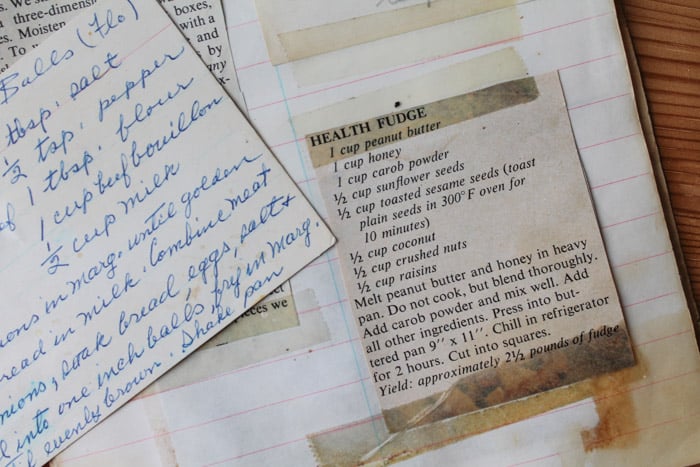 three-dimension
Moisten
To
boxes,
with a
and
by
any
Balls (Flo)
tbsp. salt
½ tsp. pepper
of 1 tbsp. flour
1 cup beef bouillon
½ cup milk
ions in marg. until golden
read in milk. Combine meat
nions, soak bread eggs, salt +
into one inch balls, fry in marg.
evenly brown. Shake pan
ieces we
HEALTH FUDGE
1 cup peanut butter
1 cup honey
1 cup carob powder
½ cup sunflower seeds
½ cup toasted sesame seeds (toast
plain seeds in 300°F oven for
10 minutes)
½ cup coconut
½ cup crushed nuts
½ cup raisins
Melt peanut butter and honey in heavy
pan. Do not cook, but blend thoroughly.
Add carob powder and mix well. Add
all other ingredients. Press into but-
tered pan 9" x 11". Chill in refrigerator
for 2 hours. Cut into squares.
Yield: approximately 2½ pounds of fudge